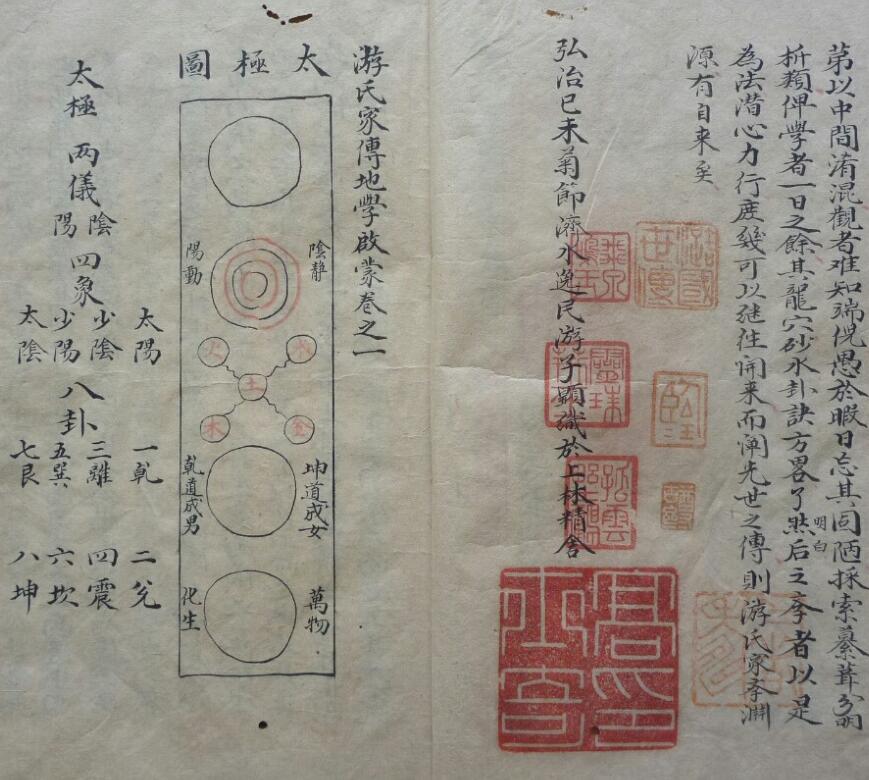 第以中間淆混觀者难知端倪愚於暇日忘其固陋採索纂葺分明
析類俾學者一日之餘其龍穴砂水卦訣方畧了然明白后之孝者以是
為法潜心力行庶幾可以继往開来而闡先世之傳則游氏家孝淵
源有自来矣
弘治己未菊節濟水逸民游子顯識於上林精舍
游氏家傳地學啟蒙卷之一
太極圖
陰静
陽動
水
火
土
金
木
坤道成女
乾道成男
萬物
化生
太極 两儀 陰 陽 四象 八卦
太陽 一乾 二兑
少陰 三離 四震
少陽 五巽 六坎
太陰 七艮 八坤